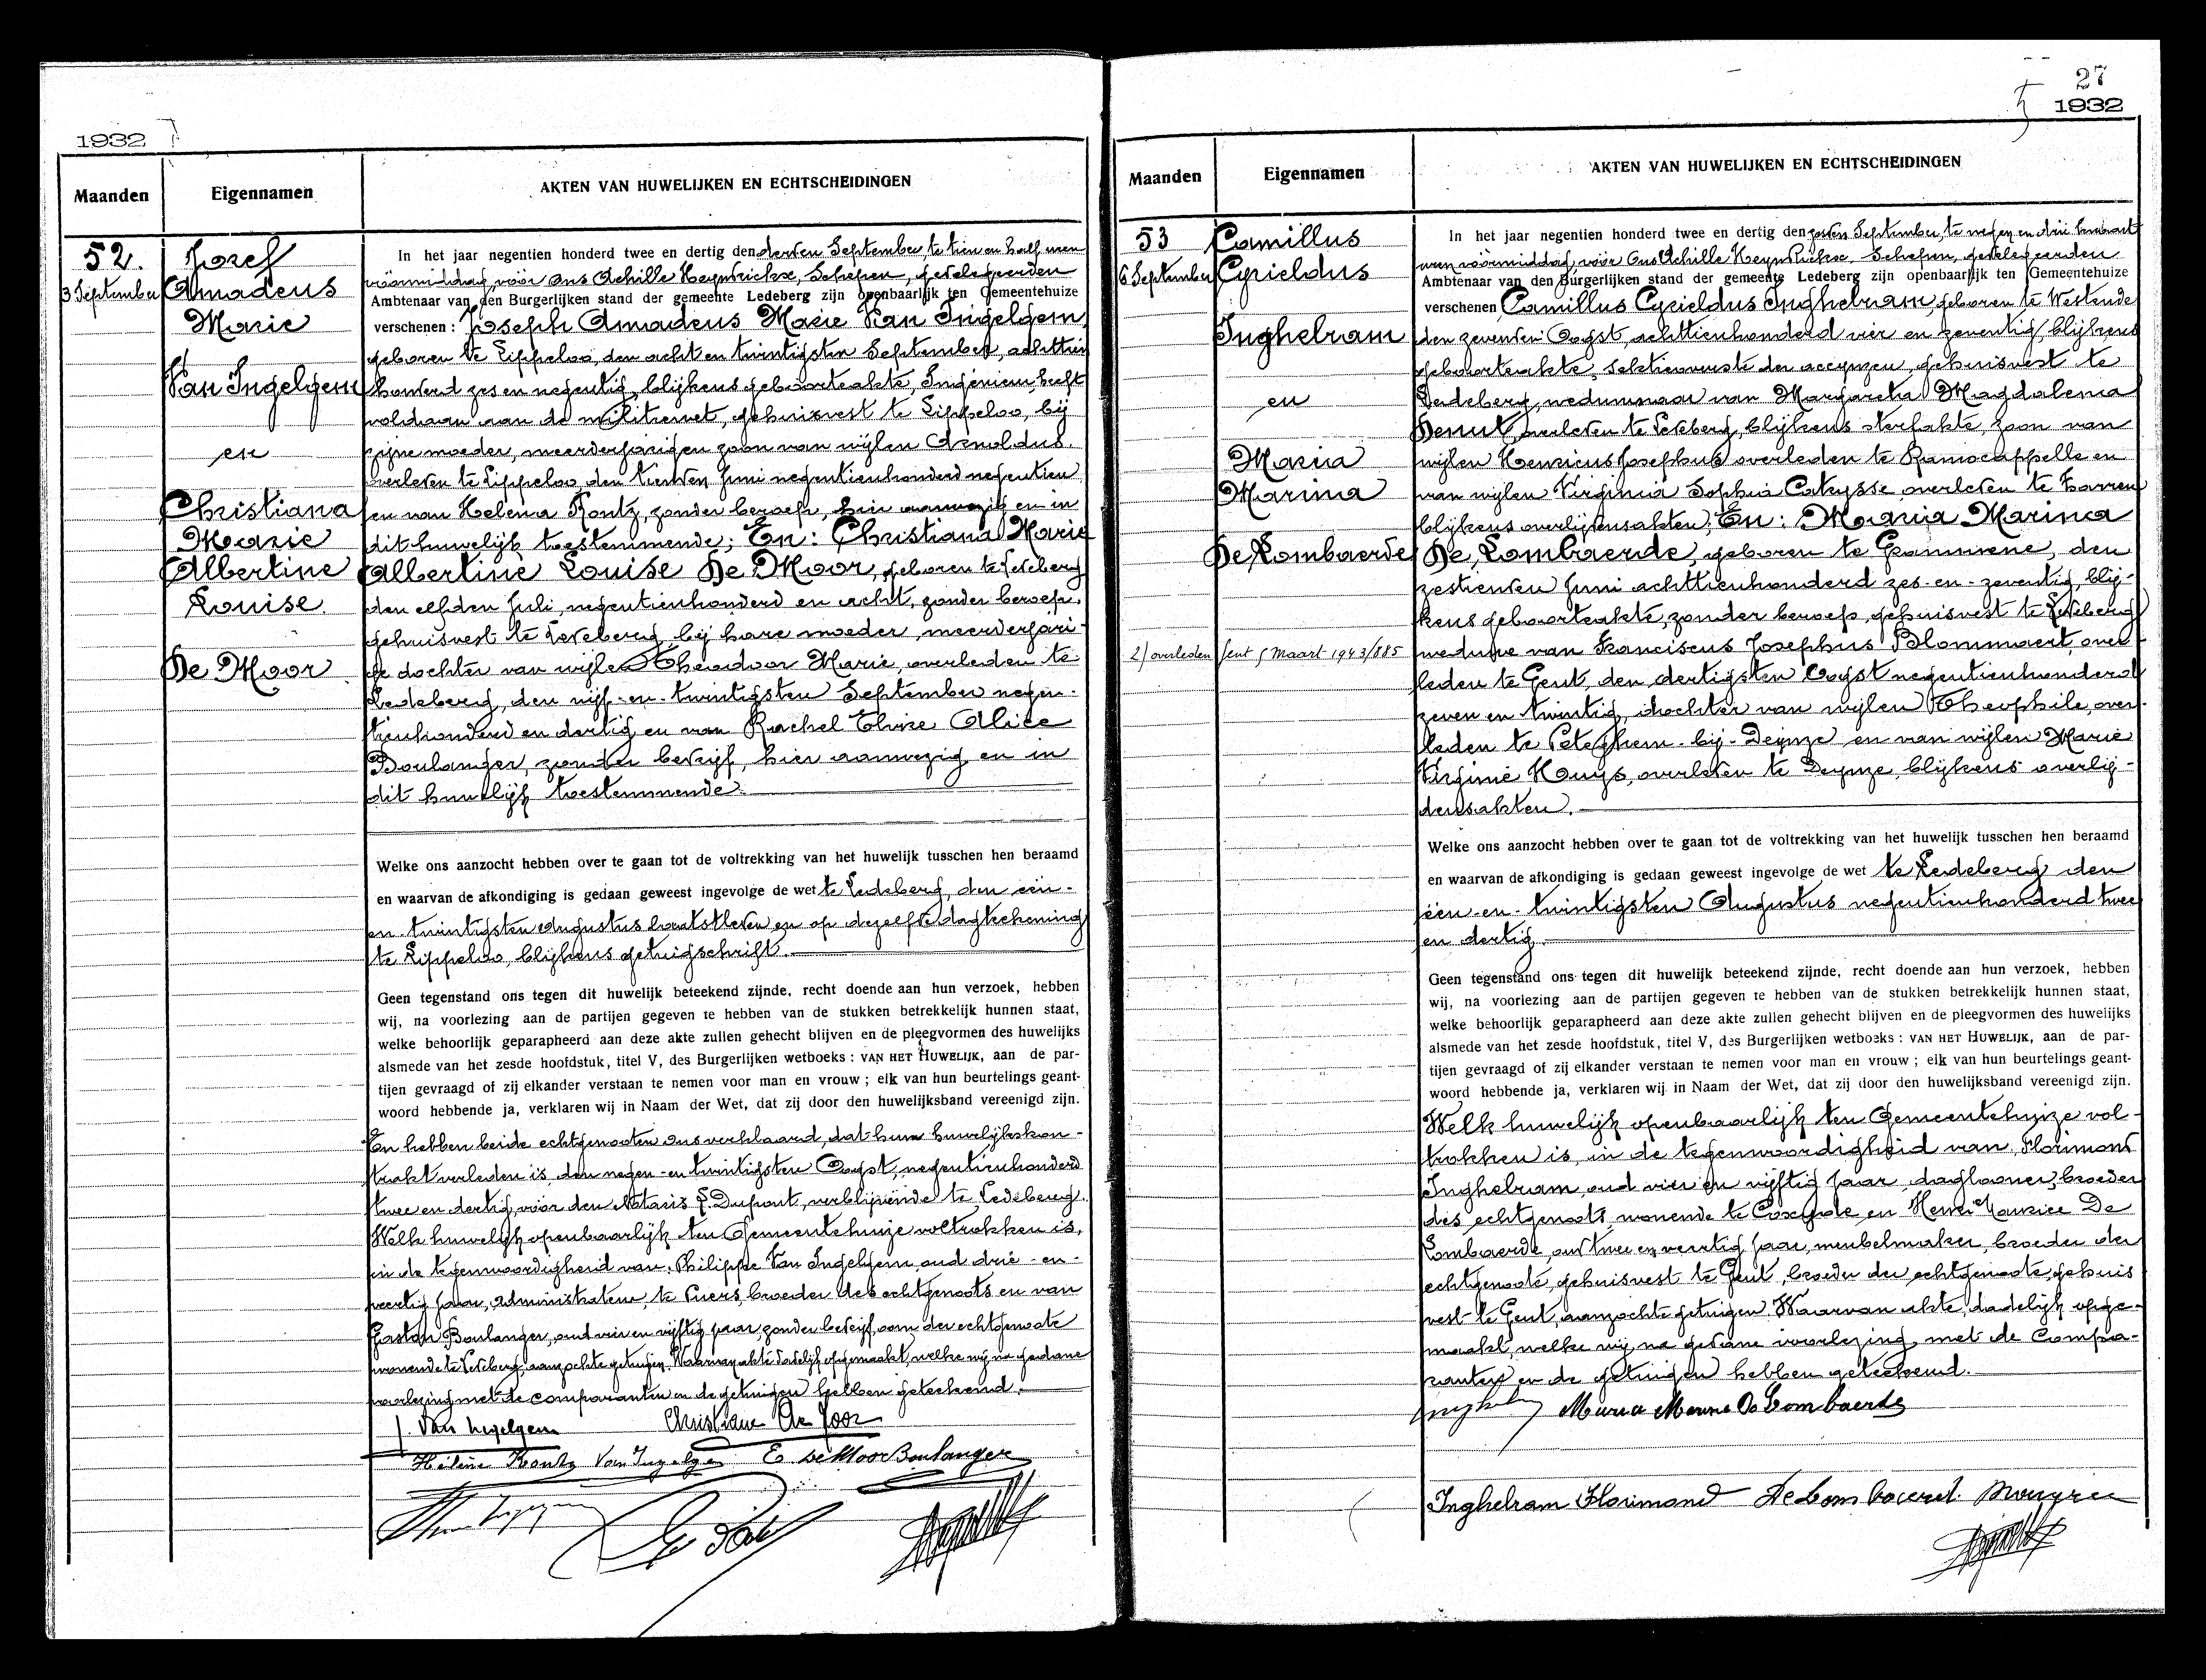 1932
Maanden
Eigennamen
AKTEN VAN HUWELIJKEN EN ECHTSCHEIDINGEN
52.
3 September
Jozef
Amadeus
Marie
Van Ingelgem
en
Christiana
Marie
Albertine
Louise
De Moor
In het jaar negentien honderd twee en dertig den derden September, te tien en half uren
vóórmiddag, vóór ons Achille Heynrickx, Schepen, gedelegeerden
Ambtenaar van den Burgerlijken stand der gemeente Ledeberg zijn openbaarlijk ten Gemeentehuize
verschenen: Joseph Amadeus Marie Van Ingelgem,
geboren te Lippeloo, den acht en twintigsten September, achttien
honderd zes en negentig, blijkens geboorteakte, Ingenieur, heeft
voldaan aan de militiewet, gehuisvest te Lippeloo, bij
zijne moeder, meerderjarigen zoon van wijlen Arnoldus,
overleden te Lippeloo, den Juni negentienhonderd negentien
en van Helena Rontz, zonder beroep, hier aanwezig en in
dit huwelijk toestemmende; En: Christiana Marie
Albertine Louise De Moor, geboren te Ledeberg
den elfden Juli, negentienhonderd en acht, zonder beroep,
gehuisvest te Ledeberg, bij hare moeder, meerderjari-
ge dochter van wijlen Theodoor Marie, overleden te
Ledeberg, den vijf-en-twintigsten September negen-
tienhonderd en dertig en van Rachel Elvire Alice
Boulanger, zonder bedrijf, hier aanwezig en in
dit huwelijk toestemmende.
Welke ons aanzocht hebben over te gaan tot de voltrekking van het huwelijk tusschen hen beraamd
en waarvan de afkondiging is gedaan geweest ingevolge de wet te Ledeberg, den één-
en-twintigsten Augustus laatstleden en op dezelfde dagteekening
te Lippeloo, blijkens getuigschrift.
Geen tegenstand ons tegen dit huwelijk beteekend zijnde, recht doende aan hun verzoek, hebben
wij, na voorlezing aan de partijen gegeven te hebben van de stukken betrekkelijk hunnen staat,
welke behoorlijk geparapheerd aan deze akte zullen gehecht blijven en de pleegvormen des huwelijks
alsmede van het zesde hoofdstuk, titel V, des Burgerlijken wetboeks: VAN HET HUWELIJK, aan de par-
tijen gevraagd of zij elkander verstaan te nemen voor man en vrouw; elk van hun beurtelings geant-
woord hebbende ja, verklaren wij in Naam der Wet, dat zij door den huwelijksband vereenigd zijn.
En hebben beide echtgenooten ons verklaard, dat hun huwelijkskon-
trakt verleden is, den negen-en twintigsten Oogst, negentienhonderd
twee en dertig, vóór den Notaris F. Dupont, verblijvende te Ledeberg.
Welk huwelijk openbaarlijk ten Gemeentehuize voltrokken is,
in de tegenwoordigheid van: Philippe Van Ingelgem, oud drie-en-
veertig jaar, administrateur, te Puers, broeder des echtgenoots en van
Gaston Boulanger, oud vier en vijftig jaar, zonder bedrijf, oom der echtgenoote
wonende te Ledeberg, aanzochte getuigen. Waarvan akte, dadelijk opgemaakt, welke wij na gedane
voorlezing met de comparanten en de getuigen hebben geteekend.
J. Van Ingelgem Christiane De Moor
Hélène Rontz Van Ingelgem E. De Moor Boulanger
27
1932
Maanden
Eigennamen
AKTEN VAN HUWELIJKEN EN ECHTSCHEIDINGEN
53
6 September
Camillus
Cyrieldus
Inghelram
en
Maria
Marina
De Lombaerde
2) overleden Gent 5 Maart 1943/885
In het jaar negentien honderd twee en dertig den zesden September, te negen en drie kwaart
uren vóórmiddag, vóór Ons Achille Heynrickx, Schepen, gedelegeerden
Ambtenaar van den Burgerlijken stand der gemeente Ledeberg zijn openbaarlijk ten Gemeentehuize
verschenen Camillus Cyrieldus Inghelram, geboren te Westende
den zevensten Oogst, achttienhonderd vier en zeventig, blijkens
geboorteakte, sektieoverste der accynzen, gehuisvest te
Ledeberg, weduwnaar van Margareta Magdalena
Denut, overleden te Ledeberg, blijkens sterfakte, zoon van
wijlen Henricus Josephus overleden te Ramscappelle en
van wijlen Virginia Sophia Catrysse, overleden te Zarren
blijkens overlijdensakten; En: Maria Marina
De Lombaerde, geboren te Grammene, den
zestienden Juni achttienhonderd zes-en-zeventig, blij-
kens geboorteakte, zonder beroep, gehuisvest te Ledeberg
weduwe van Franciscus Josephus Blommaert, over-
leden te Gent, den dertigsten Oogst negentienhonderd
zeven en twintig, dochter van wijlen Theophile, over-
leden te Peteghem-bij-Deynze en van wijlen Marie
Virginie Huys, overleden te Deynze, blijkens overlij-
densakten.
Welke ons aanzocht hebben over te gaan tot de voltrekking van het huwelijk tusschen hen beraamd
en waarvan de afkondiging is gedaan geweest ingevolge de wet te Ledeberg den
één-en-twintigsten Augustus negentienhonderd twee
en dertig.
Geen tegenstand ons tegen dit huwelijk beteekend zijnde, recht doende aan hun verzoek, hebben
wij, na voorlezing aan de partijen gegeven te hebben van de stukken betrekkelijk hunnen staat,
welke behoorlijk geparapheerd aan deze akte zullen gehecht blijven en de pleegvormen des huwelijks
alsmede van het zesde hoofdstuk, titel V, des Burgerlijken wetboeks: VAN HET HUWELIJK, aan de par-
tijen gevraagd of zij elkander verstaan te nemen voor man en vrouw; elk van hun beurtelings geant-
woord hebbende ja, verklaren wij in Naam der Wet, dat zij door den huwelijksband vereenigd zijn.
Welk huwelijk openbaarlijk ten Gemeentehuize vol-
trokken is, in de tegenwoordigheid van, Florimond
Inghelram, oud vier en vijftig jaar, daglooner, broeder
des echtgenoots, wonende te Coxyde en Henri Maurice De
Lombaerde, oud twee en veertig jaar, meubelmaker, broeder der
echtgenoote, gehuisvest te Gent, broeder der echtgenoote, gehuis
vest te Gent, aanzochte getuigen. Waarvan akte, dadelijk opge-
maakt, welke wij, na gedane voorlezing, met de Compa-
ranten en de getuigen hebben geteekend.
Inghelram Maria Marina De Lombaerde
Inghelram Florimond De Lombaerde Mauryce